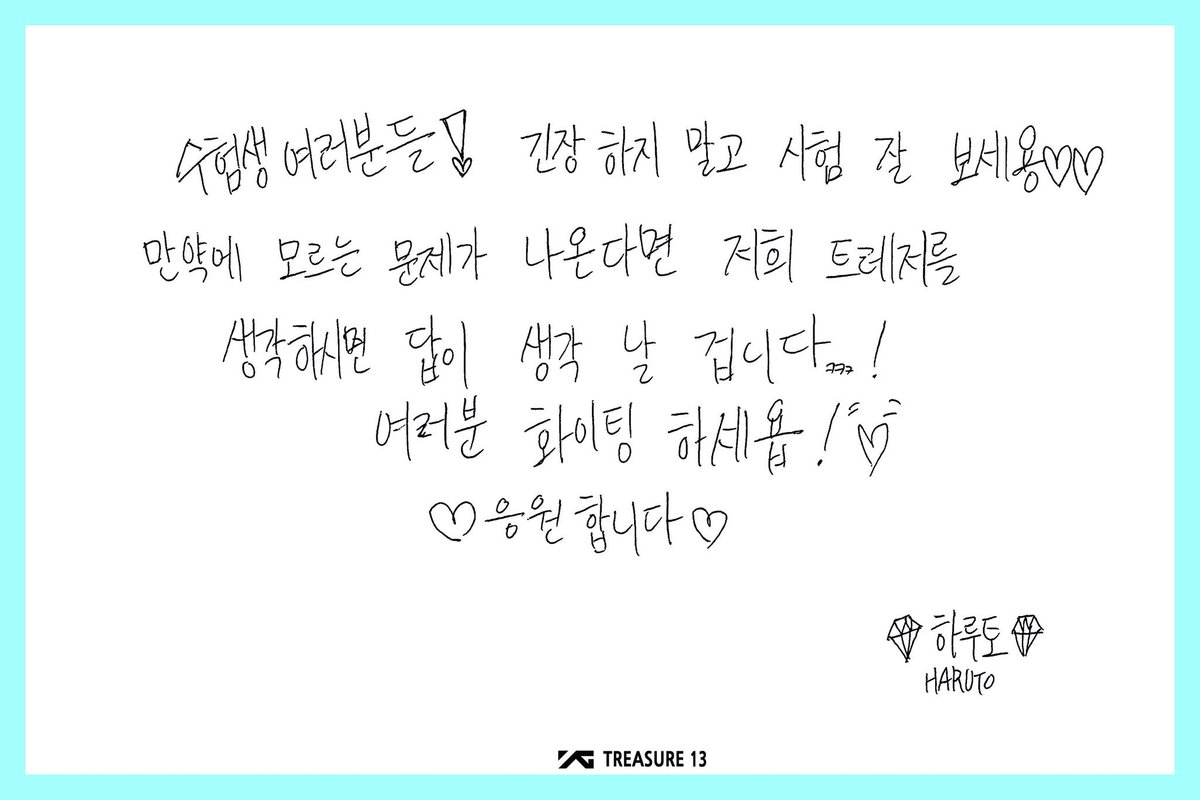 수험생 여러분들! 긴장 하지 말고 시험 잘 보세용♡♡
만약에 모르는 문제가 나온다면 저희 트레저를
생각하시면 답이 생각 날 겁니다ㅋㅋㅋ!
여러분 화이팅 하세욥! ♡
♡응원합니다♡
하루토
HARUTO
YG TREASURE 13